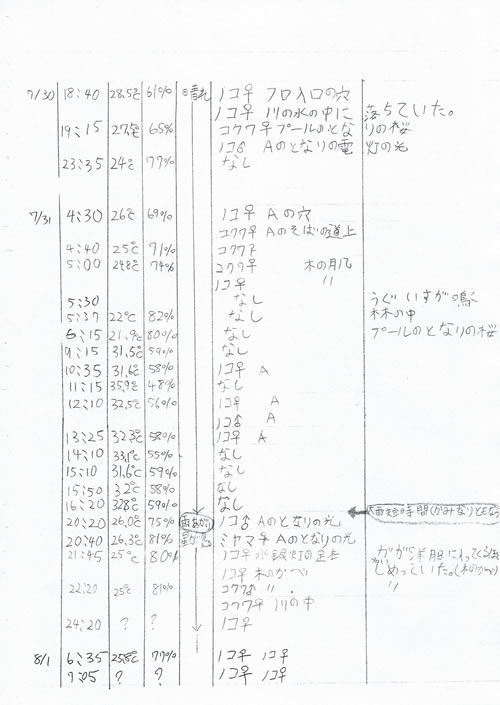 7/30 18:40 28.5℃ 61% 晴れ ノコ♀ フロ入口の穴
ノコ♀ 川の水の中に 落ちていた。
19:15 27.5℃ 65% コクワ♀ プールのとなりの桜
ノコ♂ Aのとなりの電灯の光
23:35 24℃ 77% なし
7/31 4:30 26℃ 69% ノコ♀ Aの穴
コクワ♀ Aのそばの道上
4:40 25℃ 71% コクワ♀
5:00 24.8℃ 74% コクワ♀ 木の
ノコ♀ 〃
5:30 なし うぐいすが鳴く
5:37 22℃ 82% なし 林の中
6:15 21.9℃ 80% なし プールのとなりの桜
9:15 31.5℃ 59% なし
10:35 31.6℃ 58% ノコ♀ A
11:15 35.9℃ 48% なし
12:10 32.5℃ 56% ノコ♀ A
ノコ♂ A
13:25 32.3℃ 58% ノコ♀ A
14:10 33.1℃ 55% なし
15:10 31.6℃ 59% なし
15:50 32℃ 58% なし
16:20 32.8℃ 59% なし
20:20 26.0℃ 75% 雨あがり ノコ♂ Aのとなりの光
20:40 26.3℃ 81% ミヤマ♀ Aのとなりの光
21:45 25℃ 80% ノコ♀ 水銀灯の
ノコ♀ 木のかべ
22:20 25℃ 81% コクワ♂ 〃 〃
コクワ♀ 川の中
24:20 ? ? ノコ♀
8/1 6:35 25.8℃ 77% ノコ♀ ノコ♀
7:05 ? ? ノコ♀ ノコ♀